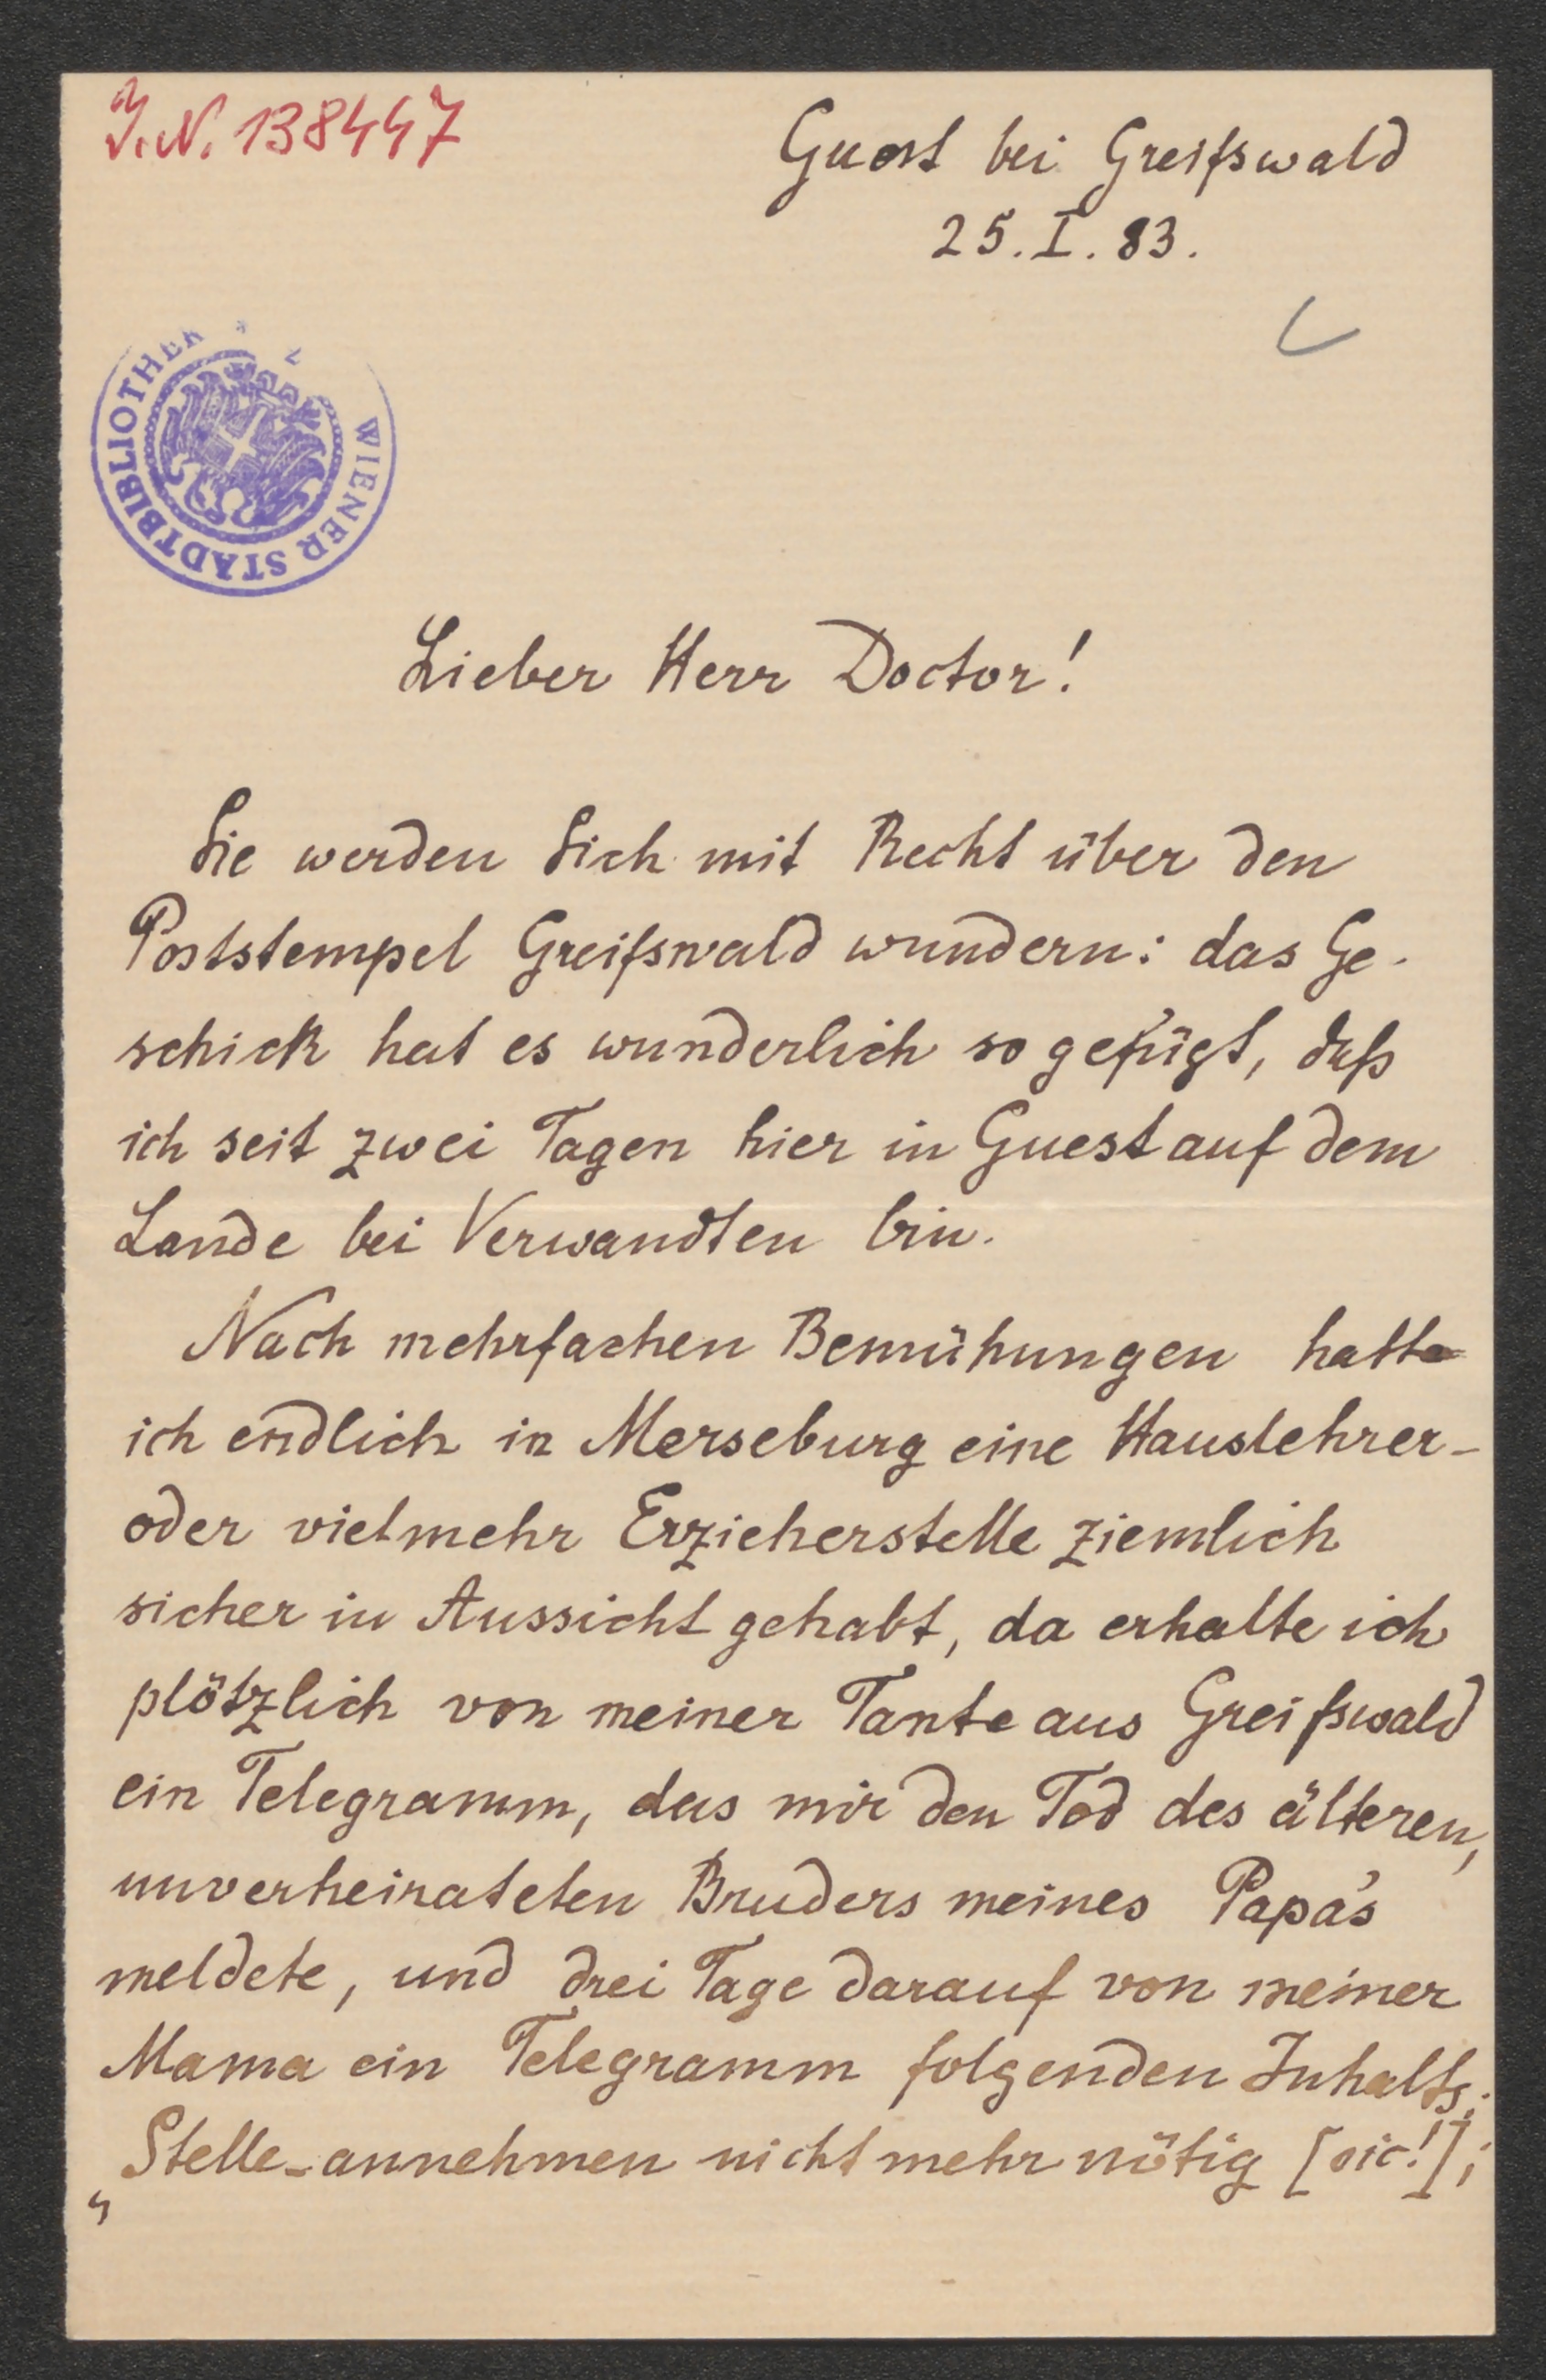 J.N. 138447
Guest bei Greifswald
25. I. 83.
WIENER STADTBIBLIOTHEK
Lieber Herr Doctor!
Sie werden Sich mit Recht über den
Poststempel Greifswald wundern: das Ge-
schick hat es wunderlich so gefügt, daß
ich seit zwei Tagen hier in Guest auf dem
Lande bei Verwandten bin.
Nach mehrfachen Bemühungen hatte
ich endlich in Merseburg eine Hauslehrer-
oder vielmehr Erzieherstelle ziemlich
sicher in Aussicht gehabt, da erhalte ich
plötzlich von meiner Tante aus Greifswald
ein Telegramm, das mir den Tod des älteren,
unverheirateten Bruders meines Papa's
meldete, und drei Tage darauf von meiner
Mama ein Telegramm folgenden Inhalts:
„Stelle-annehmen nicht mehr nötig [sic!];